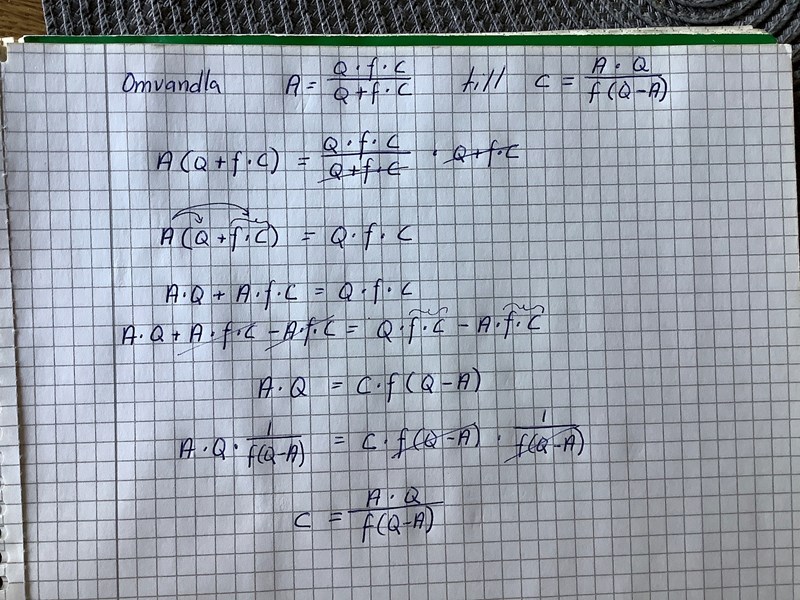 Omvandla A = Q · f · C / Q + f · C till C = A · Q / f (Q – A)
A (Q + f · C) = Q · f · C / Q + f · C · Q + f · C
A (Q + f · C) = Q · f · C
A · Q + A · f · C = Q · f · C
A · Q + A · f · C – A · f · C = Q · f · C – A · f · C
A · Q = C · f (Q – A)
A · Q · 1 / f(Q – A) = C · f(Q – A) · 1 / f(Q – A)
C = A · Q / f(Q – A)